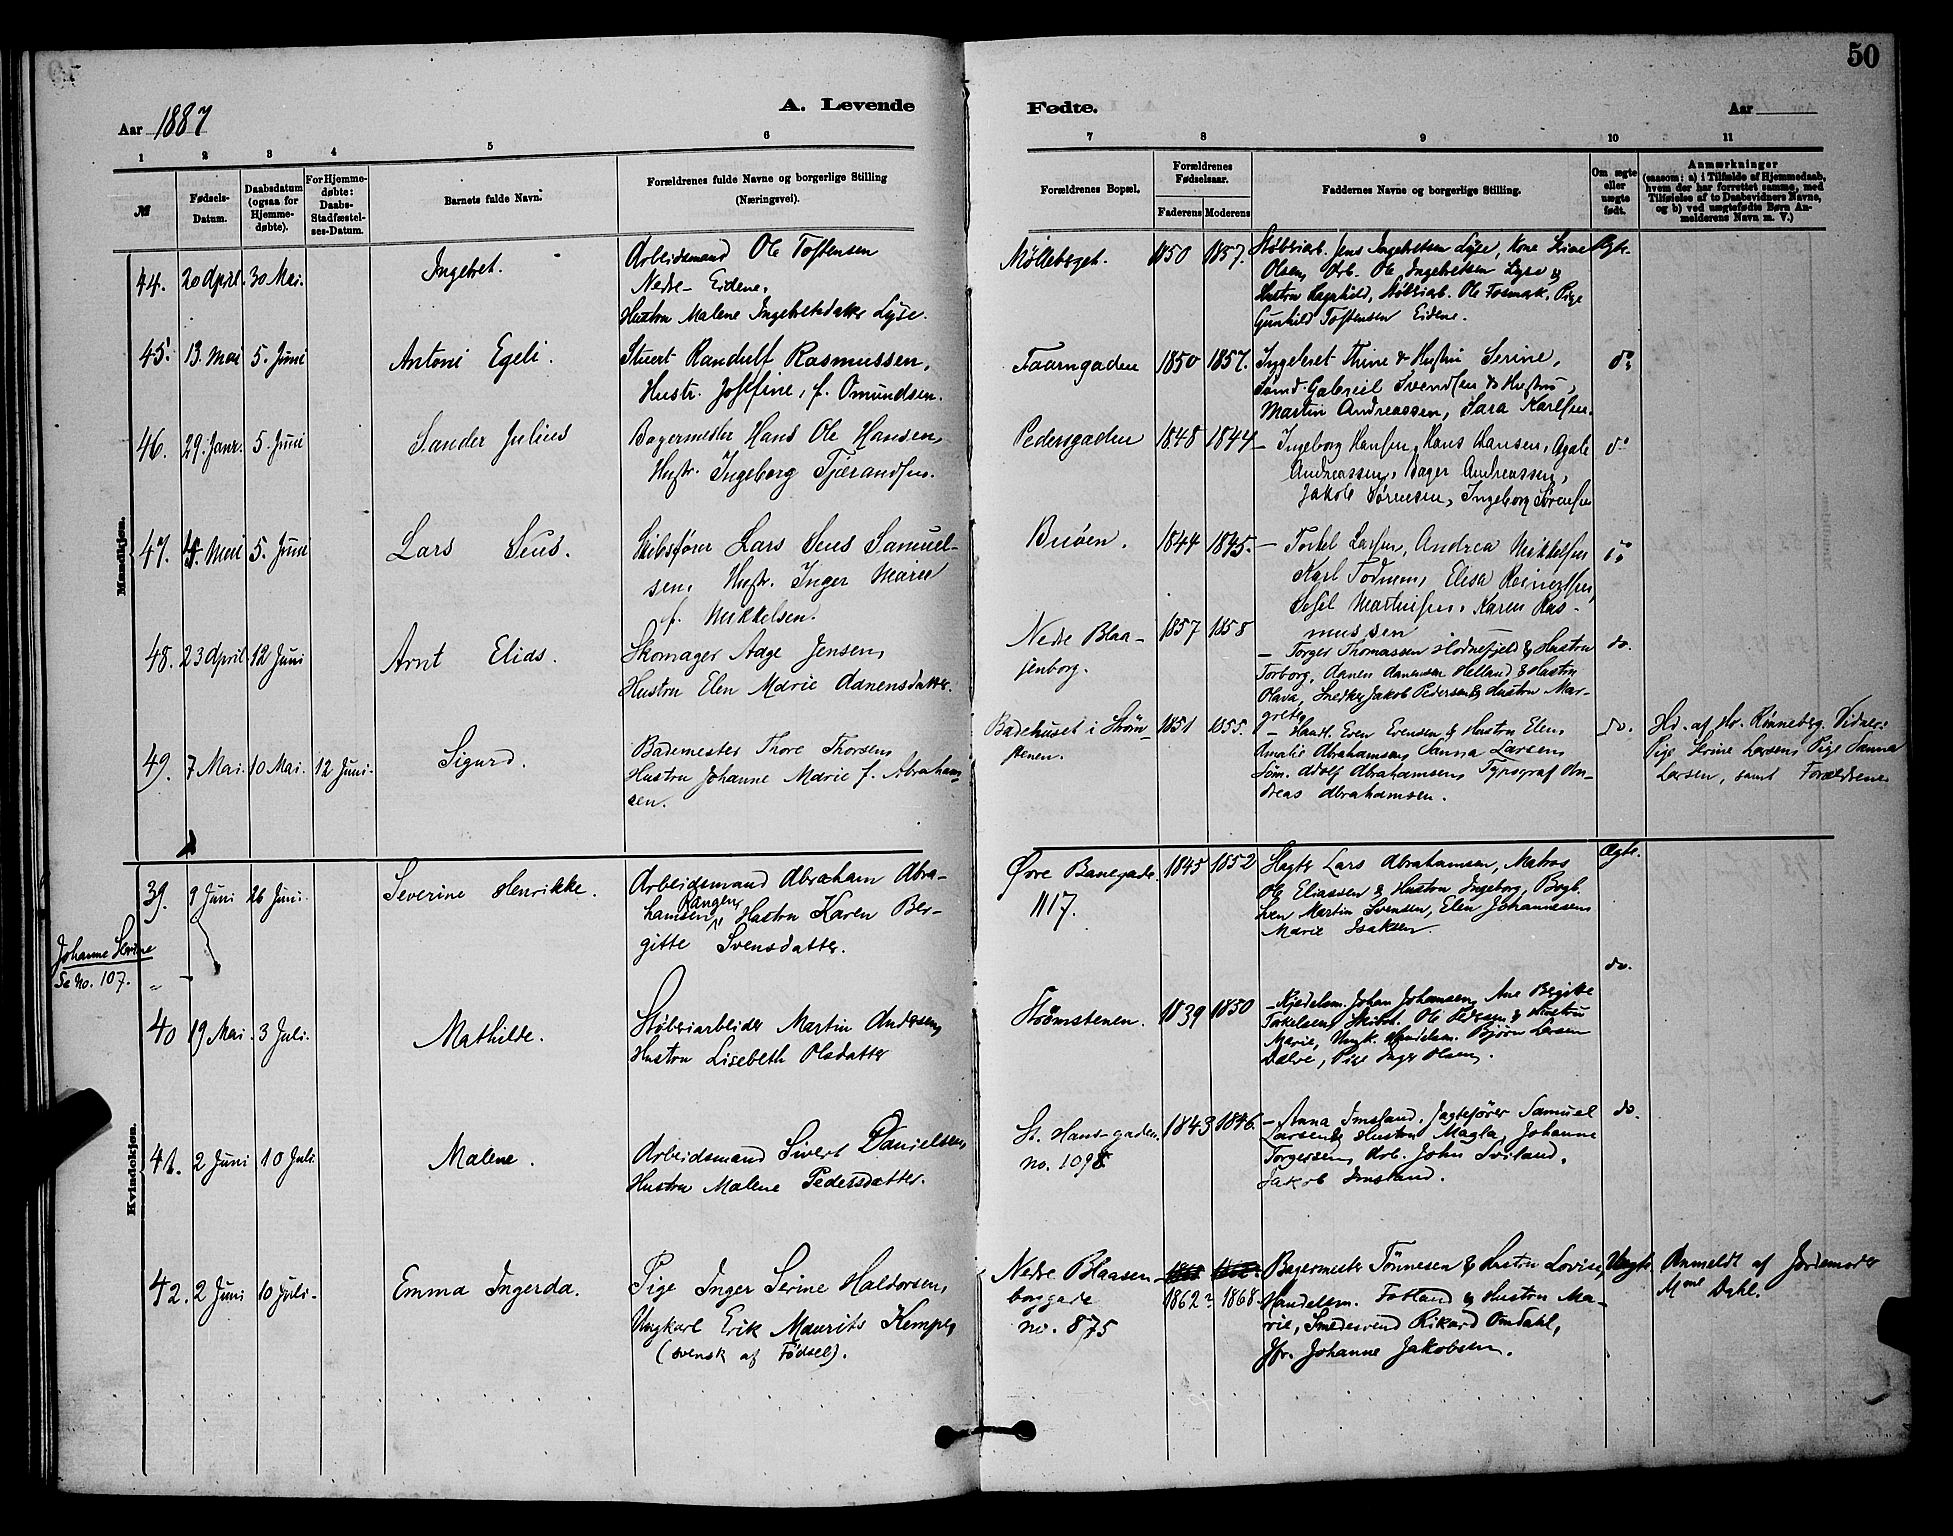 50
A. Levende
Fødte.
Aar 1887
Aar
1 2 3 4 5 6 7 8 9 10 11
№
Fødsels-
Datum.
Daabsdatum
(ogsaa for
Hjemme-
døbte).
For Hjemme-
døbte:
Daabs-
Stadfæstel-
ses-Datum.
Barnets fulde Navn.
Forældrenes fulde Navne og borgerlige Stilling
(Næringsvei).
Forældrenes Bopæl.
Forældrenes
Fødselsaar.
Faderens Moderens
Faddernes Navne og borgerlige Stilling.
Om ægte
eller
uægte
født.
Anmærkninger
(saasom: a) i Tilfælde af Hjemmedaab,
hvem der har forrettet samme, med
Tilføielse af to Daabsvidners Navne,
og b) ved uægtefødte Børn An-
melderens Navn m. V.)
Mandkjøn.
44. 20 April. 30 Mai.
Ingebret.
Arbeidsmand Ole Tostensen
Nedre-Eidene,
Hustru Malene Ingebretsdatter Lyse.
Mølleberget. 1850 1857.
Støberiarb. Jens Ingebretsen Lyse, Kone Serine
Olsen, Arb. Ole Ingebretsen Lyse &
Hustru Ragnhild, Støberiarb. Ole Fosmark, Pige
Gunhild Tostensen Eidene.
Ægte.
45. 13. Mai 5. Juni
Antoni Egeli.
Stuert Randulf Rasmussen,
Hustr. Josefine, f. Omundsen.
Taarngaden 1850 1857.
Ingebret Thime & Hustru Serine,
Sømd. Gabriel Svendsen & Hustru,
Martin Andreassen, Sara Karlsen.
do
46. 29. Janr. 5. Juni
Sander Julius
Bagermester Hans Ole Hansen,
Hustr. Ingeborg Tjerandsen.
Pedersgaden 1848 1844
– Ingeborg Hansen, Hans Hansen, Agate
Andreassen, Bager Andreassen,
Jakob Sørensen, Ingeborg Sørensen
do
47. 4. Mai 5. Juni
Lars Seus.
Skibsfører Lars Seus Samuel-
sen, Hustr. Inger Marie
f. Mikkelsen.
Buøen. 1844 1845.
– Torkel Larsen, Andrea Mikkelsen
Karl Todnem, Elisa Reinertsen,
Sofel Martinsen, Karen Ras-
mussen
do
48. 23 April 12 Juni
Arnt Elias.
Skomager Aage Jensen,
Hustru Elen Marie Aanensdatter.
Nedre Blaa-
senborg. 1857 1858
– Torger Thomassen Hodnefjeld & Hustru
Torborg, Aanen Aanensen Helland & Hustru
Olava, Snedker Jakob Pedersen & Hustru Mar-
grete,
do.
49. 7 Mai. 10 Mai. 12 Juni.
Sigurd.
Bademester Thore Thorsen,
Hustru Johanne Marie f. Abraham-
sen.
Badehuset i Strøm-
stenen. 1851 1855.
– Handl. Even Evensen & Hustru Elen,
Amalie Abrahamsen, Sanna Larsen,
Søm. Adolf Abrahamsen, Typograf An-
dreas Abrahamsen.
do.
Hd. af Hr. Kinneberg. Vidner:
Pige Serine Larsen, Pige Sanna
Larsen, samt Forældrene.
Kvindekjøn.
39. 9 Juni 26 Juni.
Severine Henrikke.
Arbeidsmand Abraham Abra-
hamsen Rangen, Hustru Karen Ber-
gitte Svensdatter.
Øvre Banegade.
1117. 1845 1852
Slagter Lars Abrahamsen, Matros
Ole Eliassen & Hustru Ingeborg, Bogb.
Sven Martin Svensen, Elen Johannesen
Marie Isaksen.
Ægte.
Johanne Serine
Se no. 107. „ –
40 19 Mai. 3 Juli.
Mathilde.
Støberiarbeider Martin Andersen,
Hustru Lisebeth Olsdatter
Strømstenen. 1839 1850
– Kjedelsm. Johan Johansen, Ane Bergitte
Takelsen, Skibst. Ole Pedersen & Hustru
Marie, Ungk. Handelsm. Bjørn Larsen
Dalve, Pige Inger Olsen,
do.
41. 2 Juni 10 Juli.
Malene.
Arbeidsmand Sivert Danielsen,
Hustru Malene Pedersdatter.
St. Hansgaden.
no. 1098 1843 1846.
– Anna Imsland, Jagtefører Samuel
Larsen & Hustru Magla, Johanne
Torgersen, Arb. John Sviland,
Jakob Imsland.
do.
42. 2 Juni 10 Juli.
Emma Ingerda.
Pige Inger Serine Haldorsen,
Ungkarl Erik Maurits Kempe,
(svensk af Fødsel).
Nedre Blaasen-
borggade
no. 875 1862? 1868.
Bagermester Tønnesen & Hustru Lovise,
Handelsm. Fosland & Hustru Ma-
rie, Smedesvend Rikard Omdahl,
Jfr. Johanne Jakobsen.
Uægte
Anmeldt af Jordemoder
Mme Dahl.